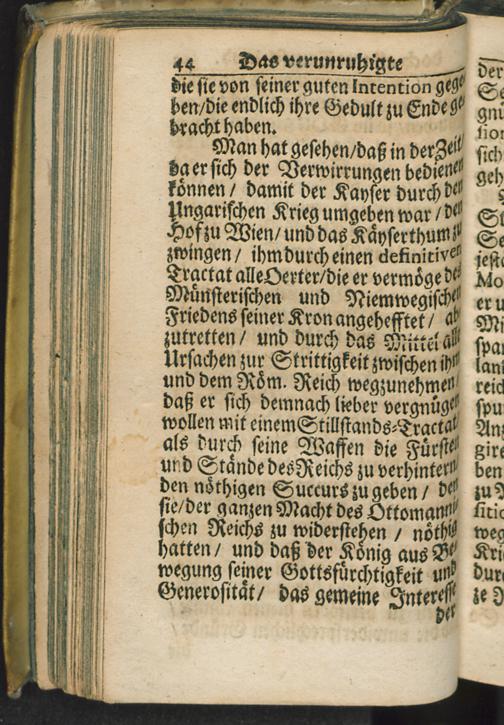 44 Das verunruhigte
die sie von seiner guten Intention gege
ben/die endlich ihre Gedult zu Ende ge
bracht haben.
Man hat gesehen/daß in der Zeit/
da er sich der Verwirrungen bedienen
können / damit der Kayser durch den
Ungarischen Krieg umgeben war / den
Hof zu Wien/ und das Käyserthum zu
zwingen / ihm durch einen definitiven
Tractat alle Oerter/die er vermöge des
Münsterischen und Niemwegischen
Friedens seiner Kron angehefftet / ab
zutretten / und durch das Mittel alle
Ursachen zur Strittigkeit zwischen ihm
und dem Röm. Reich wegzunehmen/
daß er sich demnach lieber vergnügen
wollen mit einem Stillstands-Tractat
als durch seine Waffen die Fürsten
und Stände des Reichs zu verhintern
den nöthigen Succurs zu geben / den
sie/der ganzen Macht des Ottomanni
schen Reichs zu widerstehen / nöthig
hatten / und daß der König aus Be-
wegung seiner Gottsfürchtigkeit und
Generosität/ das gemeine Interesse
der
der
gnü
sich
geh
jest
Mo
er u
spa
lan
reich
spu
gire
ben
zu
weg
Kri
dur